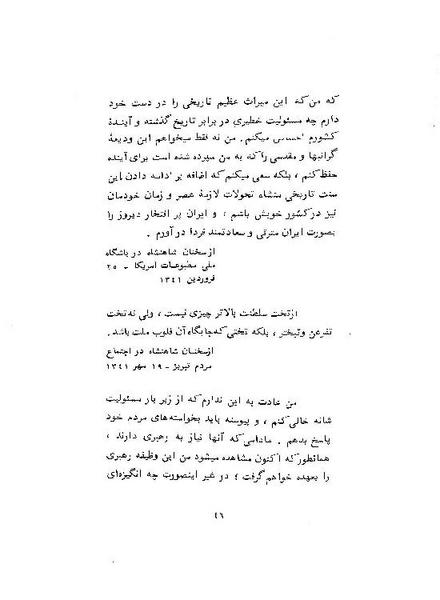 که من که این میراث عظیم تاریخی را در دست خود
دارم چه مسئولیت خطیری در برابر تاریخ گذشته و آیندهٔ
کشورم احساس میکنم . من نه فقط میخواهم این ودیعهٔ
گرانبها و مقدسی را که به من سپرده شده است برای آینده
حفظ کنم ، بلکه سعی میکنم که اضافه بر ادامه دادن این
سنت تاریخی منشاء تحولات لازمهٔ عصر و زمان خودمان
نیز در کشور خویش باشم ، و ایران پر افتخار دیروز را
بصورت ایران مترقی و سعادتمند فردا در آورم .
از سخنان شاهنشاه در باشگاه
ملی مطبوعات امریکا - ۲۵
فروردین ۱۳۴۱
از تخت سلطنت بالاتر چیزی نیست ، ولی نه تخت
تفرعن و تبختر ، بلکه تختی که جایگاه آن قلوب ملت باشد .
از سخنان شاهنشاه در اجتماع
مردم تبریز - ۱۹ مهر ۱۳۴۱
من عادت به این ندارم که از زیر بار مسئولیت
شانه خالی کنم ، و پیوسته باید بخواسته‌های مردم خود
پاسخ بدهم . مادامی که آنها نیاز به رهبری دارند ،
همانطور که اکنون مشاهده میشود من این وظیفه رهبری
را بعهده خواهم گرفت ؛ در غیر اینصورت چه انگیزه‌ای
۴۶